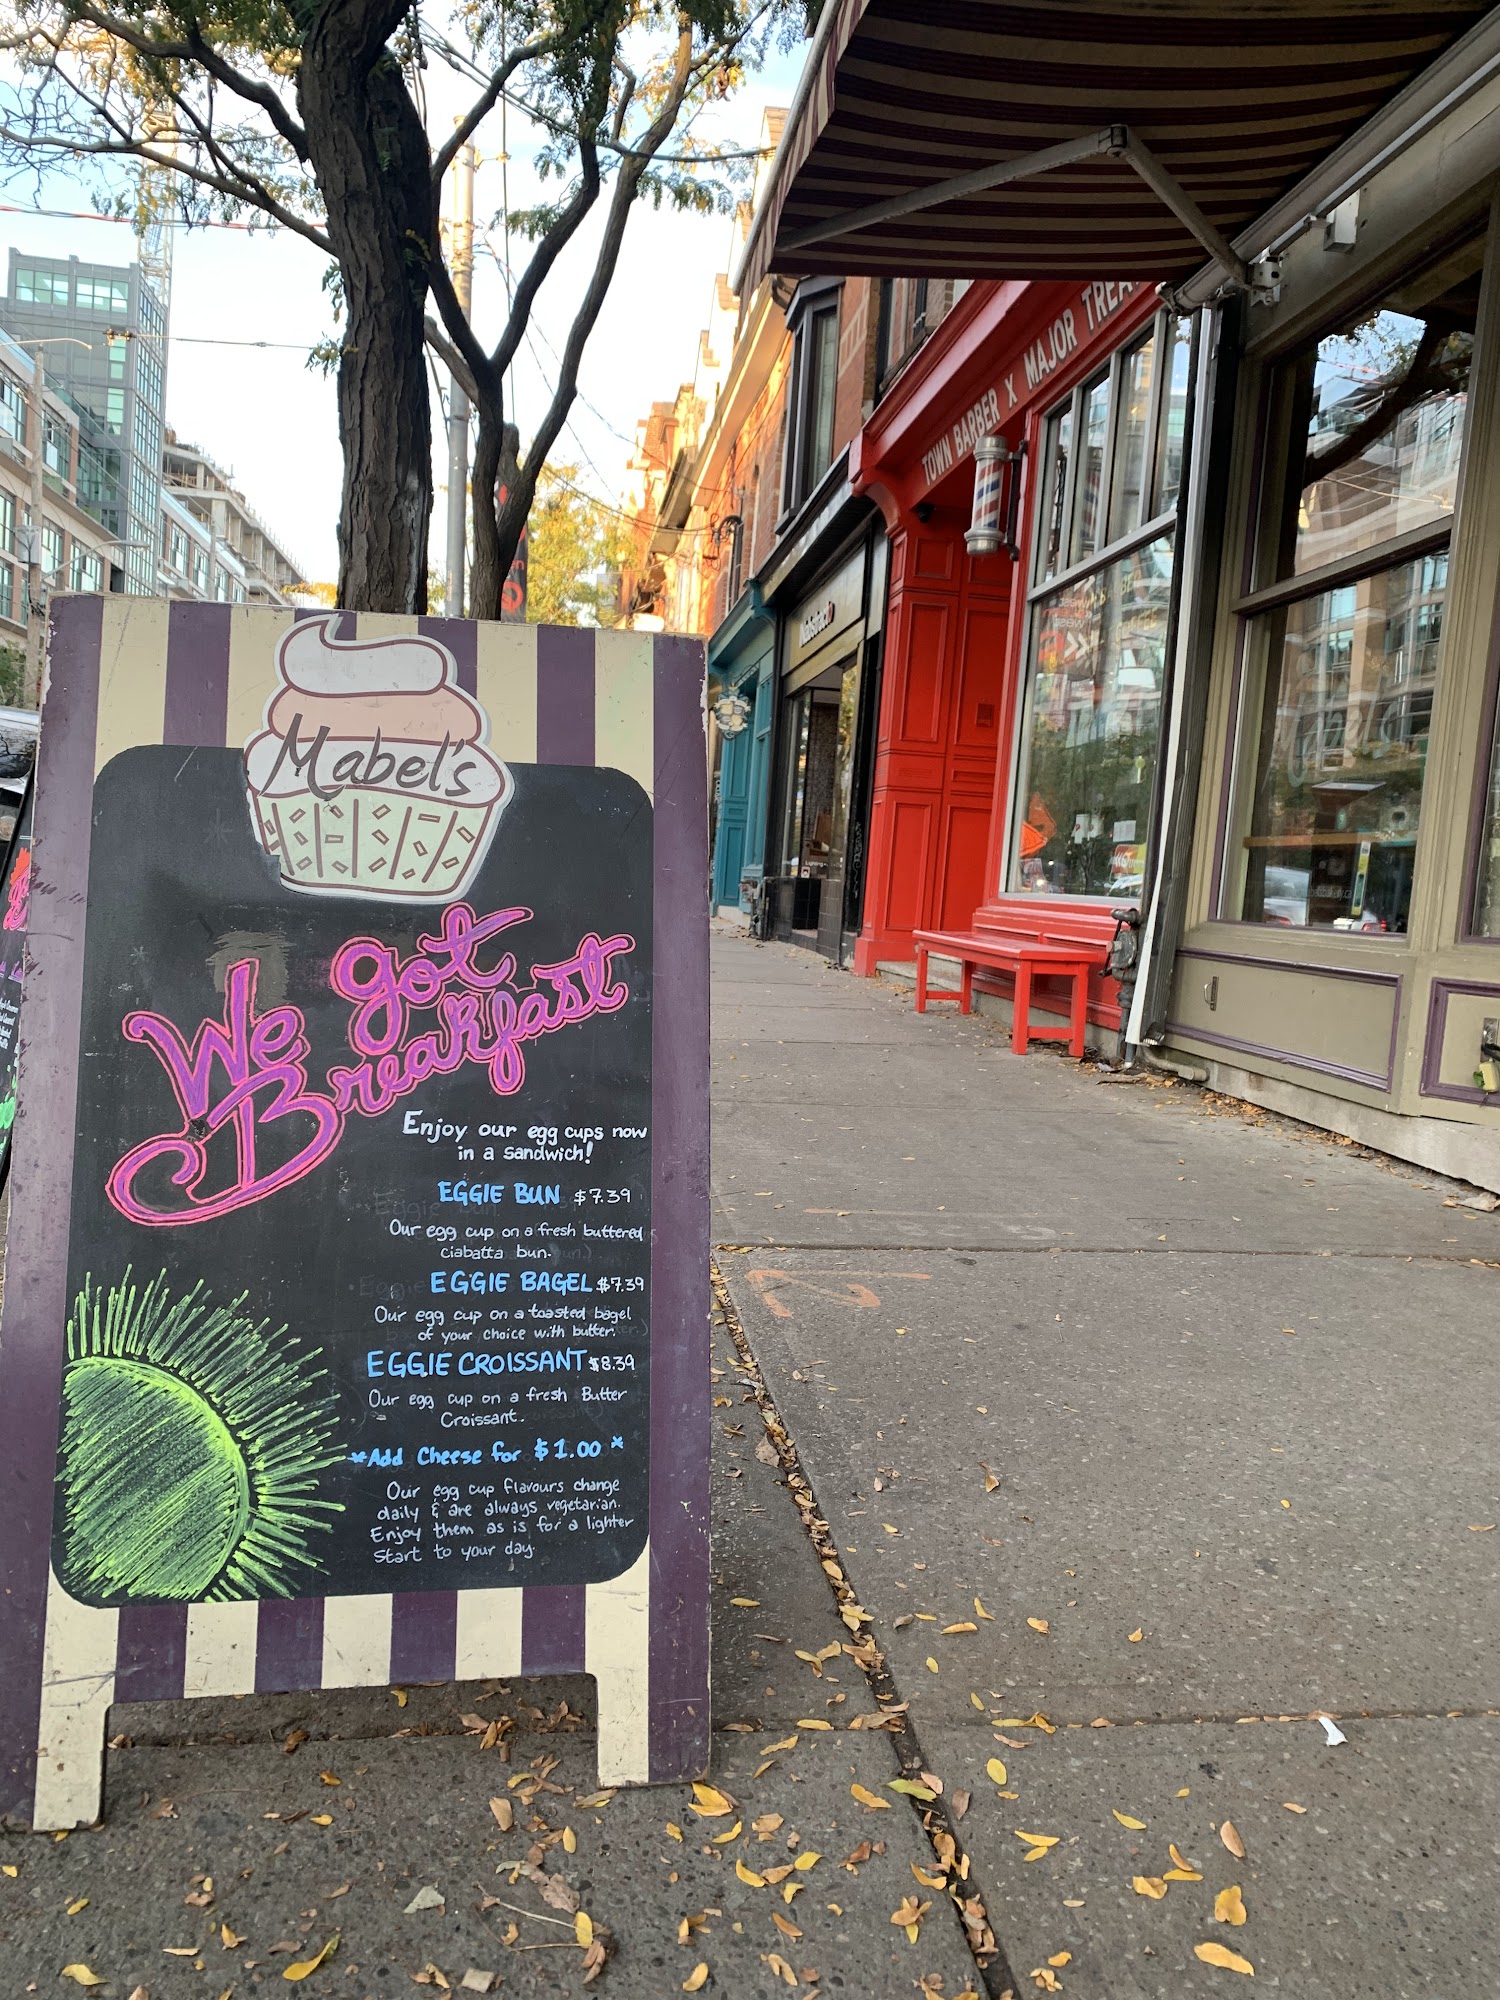 Mabel's
We got
Breakfast
Enjoy our egg cups now
in a sandwich!
EGGIE BUN $7.39
Our egg cup on a fresh buttered
ciabatta bun.
EGGIE BAGEL $7.39
Our egg cup on a toasted bagel
of your choice with butter.
EGGIE CROISSANT $8.39
Our egg cup on a fresh Butter
Croissant.
*Add Cheese for $1.00*
Our egg cup flavours change
daily & are always vegetarian.
Enjoy them as is for a lighter
start to your day.
TOWN BARBER X MAJOR TREA